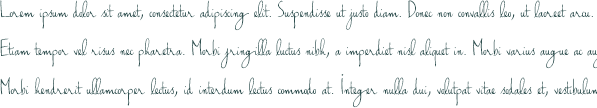 Lorem ipsum dolor sit amet, consectetur adipiscing elit. Suspendisse ut justo diam. Donec non convallis leo, ut laoreet arcu.
Etiam tempor vel risus nec pharetra. Morbi fringilla luctus nibh, a imperdiet nisl aliquet in. Morbi varius augue ac au
Morbi hendrerit ullamcorper lectus, id interdum lectus commodo at. Integer nulla dui, volutpat vitae sodales et, vestibulum